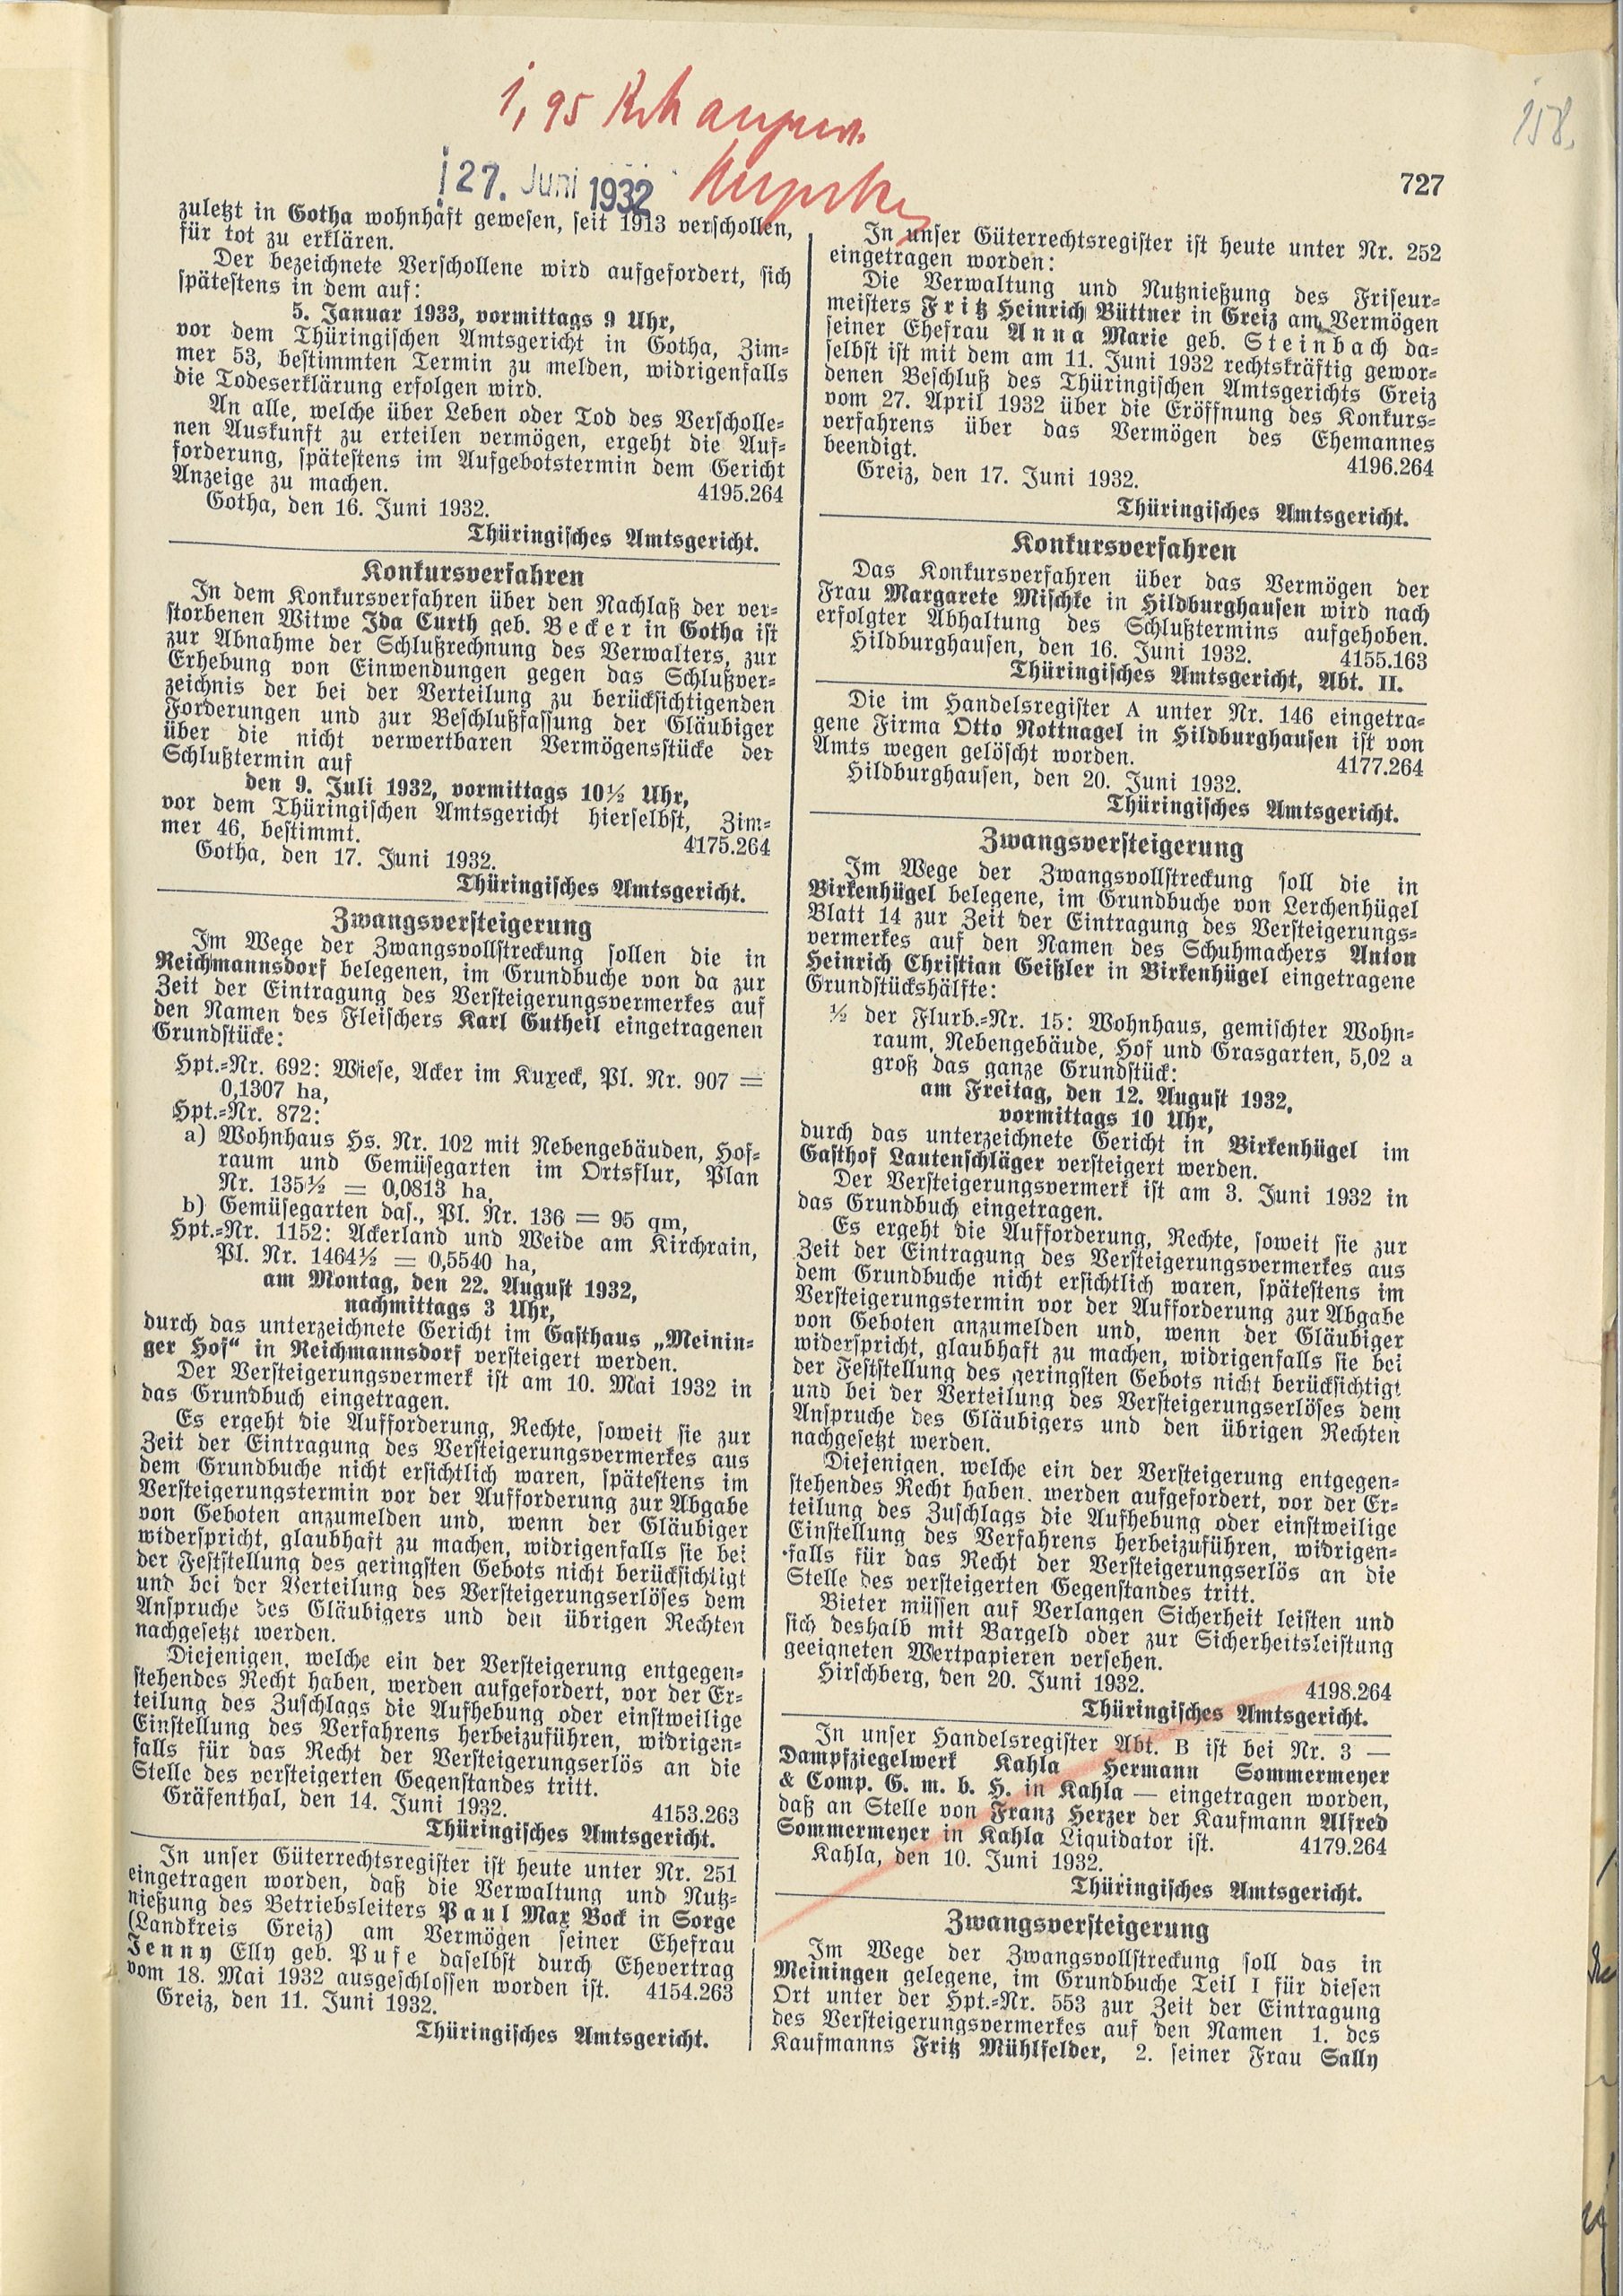 158.
27. Juni 1932
727
zuletzt in Gotha wohnhaft gewesen, seit 1913 verschollen,
für tot zu erklären.
Der bezeichnete Verschollene wird aufgefordert, sich
spätestens in dem auf:
5. Januar 1933, vormittags 9 Uhr,
vor dem Thüringischen Amtsgericht in Gotha, Zim-
mer 53, bestimmten Termin zu melden, widrigenfalls
die Todeserklärung erfolgen wird.
An alle, welche über Leben oder Tod des Verscholle-
nen Auskunft zu erteilen vermögen, ergeht die Auf-
forderung, spätestens im Aufgebotstermin dem Gericht
Anzeige zu machen. 4195.264
Gotha, den 16. Juni 1932.
Thüringisches Amtsgericht.
Konkursverfahren
In dem Konkursverfahren über den Nachlaß der ver-
storbenen Witwe Ida Curth geb. Becker in Gotha ist
zur Abnahme der Schlußrechnung des Verwalters, zur
Erhebung von Einwendungen gegen das Schlußver-
zeichnis der bei der Verteilung zu berücksichtigenden
Forderungen und zur Beschlußfassung der Gläubiger
über die nicht verwertbaren Vermögensstücke der
Schlußtermin auf
den 9. Juli 1932, vormittags 10½ Uhr,
vor dem Thüringischen Amtsgericht hierselbst, Zim-
mer 46, bestimmt. 4175.264
Gotha, den 17. Juni 1932.
Thüringisches Amtsgericht.
Zwangsversteigerung
Im Wege der Zwangsvollstreckung sollen die in
Reichmannsdorf belegenen, im Grundbuche von da zur
Zeit der Eintragung des Versteigerungsvermerkes auf
den Namen des Fleischers Karl Gutheil eingetragenen
Grundstücke:
Hpt.-Nr. 692: Wiese, Acker im Kuxeck, Pl. Nr. 907 =
0,1307 ha,
Hpt.-Nr. 872:
a) Wohnhaus Hs. Nr. 102 mit Nebengebäuden, Hof-
raum und Gemüsegarten im Ortsflur, Plan
Nr. 135½ = 0,0813 ha,
b) Gemüsegarten das., Pl. Nr. 136 = 95 qm,
Hpt.-Nr. 1152: Ackerland und Weide am Kirchrain,
Pl. Nr. 1464½ = 0,5540 ha,
am Montag, den 22. August 1932,
nachmittags 3 Uhr,
durch das unterzeichnete Gericht im Gasthaus „Meinin-
ger Hof“ in Reichmannsdorf versteigert werden.
Der Versteigerungsvermerk ist am 10. Mai 1932 in
das Grundbuch eingetragen.
Es ergeht die Aufforderung, Rechte, soweit sie zur
Zeit der Eintragung des Versteigerungsvermerkes aus
dem Grundbuche nicht ersichtlich waren, spätestens im
Versteigerungstermin vor der Aufforderung zur Abgabe
von Geboten anzumelden und, wenn der Gläubiger
widerspricht, glaubhaft zu machen, widrigenfalls sie bei
der Feststellung des geringsten Gebots nicht berücksichtigt
und bei der Verteilung des Versteigerungserlöses dem
Anspruche des Gläubigers und den übrigen Rechten
nachgesetzt werden.
Diejenigen, welche ein der Versteigerung entgegen-
stehendes Recht haben, werden aufgefordert, vor der Er-
teilung des Zuschlags die Aufhebung oder einstweilige
Einstellung des Verfahrens herbeizuführen, widrigen-
falls für das Recht der Versteigerungserlös an die
Stelle des versteigerten Gegenstandes tritt.
Gräfenthal, den 14. Juni 1932. 4153.263
Thüringisches Amtsgericht.
In unser Güterrechtsregister ist heute unter Nr. 251
eingetragen worden, daß die Verwaltung und Nutz-
nießung des Betriebsleiters Paul Max Bock in Sorge
(Landkreis Greiz) am Vermögen seiner Ehefrau
Jenny Elly geb. Pufe daselbst durch Ehevertrag
vom 18. Mai 1932 ausgeschlossen worden ist. 4154.263
Greiz, den 11. Juni 1932.
Thüringisches Amtsgericht.
In unser Güterrechtsregister ist heute unter Nr. 252
eingetragen worden:
Die Verwaltung und Nutznießung des Friseur-
meisters Fritz Heinrich Büttner in Greiz am Vermögen
seiner Ehefrau Anna Marie geb. Steinbach da-
selbst ist mit dem am 11. Juni 1932 rechtskräftig gewor-
denen Beschluß des Thüringischen Amtsgerichts Greiz
vom 27. April 1932 über die Eröffnung des Konkurs-
verfahrens über das Vermögen des Ehemannes
beendigt. 4196.264
Greiz, den 17. Juni 1932.
Thüringisches Amtsgericht.
Konkursverfahren
Das Konkursverfahren über das Vermögen der
Frau Margarete Mischke in Hildburghausen wird nach
erfolgter Abhaltung des Schlußtermins aufgehoben.
Hildburghausen, den 16. Juni 1932. 4155.163
Thüringisches Amtsgericht, Abt. II.
Die im Handelsregister A unter Nr. 146 eingetra-
gene Firma Otto Nottnagel in Hildburghausen ist von
Amts wegen gelöscht worden. 4177.264
Hildburghausen, den 20. Juni 1932.
Thüringisches Amtsgericht.
Zwangsversteigerung
Im Wege der Zwangsvollstreckung soll die in
Birkenhügel belegene, im Grundbuche von Lerchenhügel
Blatt 14 zur Zeit der Eintragung des Versteigerungs-
vermerkes auf den Namen des Schuhmachers Anton
Heinrich Christian Geißler in Birkenhügel eingetragene
Grundstückshälfte:
½ der Flurb.-Nr. 15: Wohnhaus, gemischter Wohn-
raum, Nebengebäude, Hof und Grasgarten, 5,02 a
groß das ganze Grundstück:
am Freitag, den 12. August 1932,
vormittags 10 Uhr,
durch das unterzeichnete Gericht in Birkenhügel im
Gasthof Lautenschläger versteigert werden.
Der Versteigerungsvermerk ist am 3. Juni 1932 in
das Grundbuch eingetragen.
Es ergeht die Aufforderung, Rechte, soweit sie zur
Zeit der Eintragung des Versteigerungsvermerkes aus
dem Grundbuche nicht ersichtlich waren, spätestens im
Versteigerungstermin vor der Aufforderung zur Abgabe
von Geboten anzumelden und, wenn der Gläubiger
widerspricht, glaubhaft zu machen, widrigenfalls sie bei
der Feststellung des geringsten Gebots nicht berücksichtigt
und bei der Verteilung des Versteigerungserlöses dem
Anspruche des Gläubigers und den übrigen Rechten
nachgesetzt werden.
Diejenigen, welche ein der Versteigerung entgegen-
stehendes Recht haben, werden aufgefordert, vor der Er-
teilung des Zuschlags die Aufhebung oder einstweilige
Einstellung des Verfahrens herbeizuführen, widrigen-
falls für das Recht der Versteigerungserlös an die
Stelle des versteigerten Gegenstandes tritt.
Bieter müssen auf Verlangen Sicherheit leisten und
sich deshalb mit Bargeld oder zur Sicherheitsleistung
geeigneten Wertpapieren versehen.
Hirschberg, den 20. Juni 1932. 4198.264
Thüringisches Amtsgericht.
In unser Handelsregister Abt. B ist bei Nr. 3 —
Dampfziegelwerk Kahla Hermann Sommermeyer
& Comp. G. m. b. H. in Kahla — eingetragen worden,
daß an Stelle von Franz Herzer der Kaufmann Alfred
Sommermeyer in Kahla Liquidator ist. 4179.264
Kahla, den 10. Juni 1932.
Thüringisches Amtsgericht.
Zwangsversteigerung
Im Wege der Zwangsvollstreckung soll das in
Meiningen gelegene, im Grundbuche Teil I für diesen
Ort unter der Hpt.-Nr. 553 zur Zeit der Eintragung
des Versteigerungsvermerkes auf den Namen 1. des
Kaufmanns Fritz Mühlfelder, 2. seiner Frau Sally